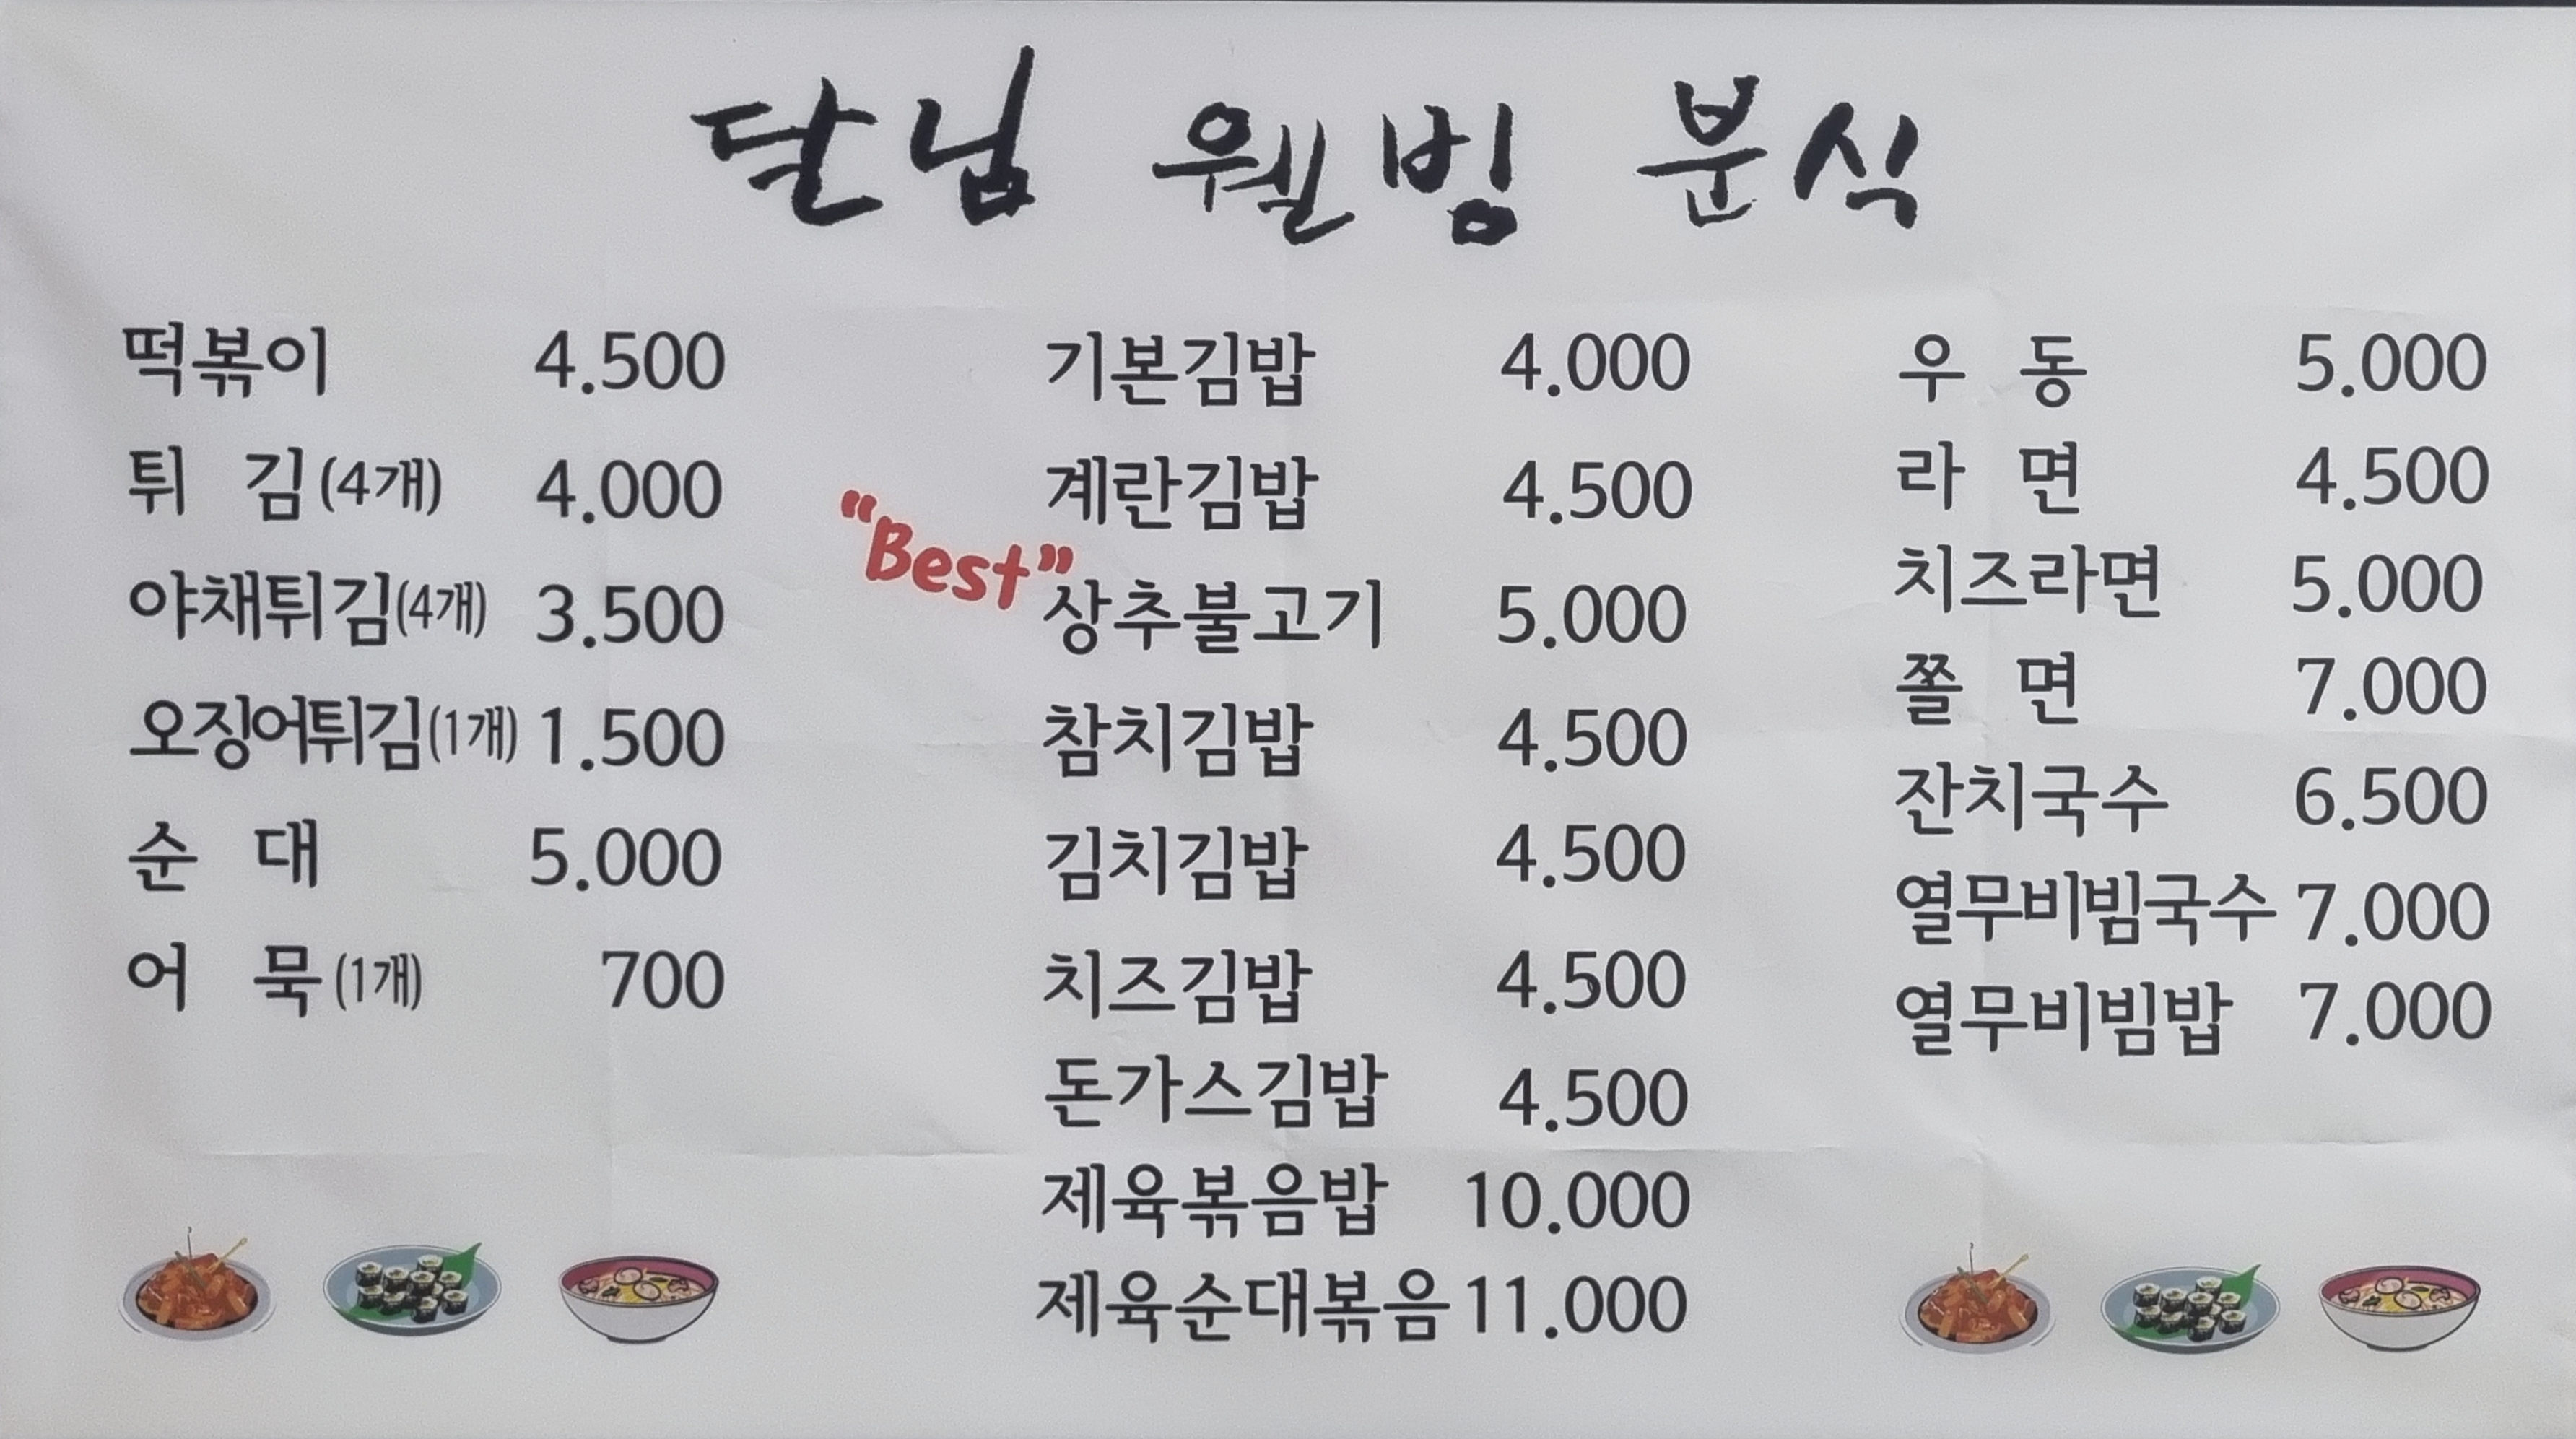 달님 웰빙 분식
떡볶이 4.500
튀 김(4개) 4.000
야채튀김(4개) 3.500
오징어튀김(1개) 1.500
순 대 5.000
어 묵(1개) 700
기본김밥 4.000
계란김밥 4.500
"Best"
상추불고기 5.000
참치김밥 4.500
김치김밥 4.500
치즈김밥 4.500
돈가스김밥 4.500
제육볶음밥 10.000
제육순대볶음 11.000
우 동 5.000
라 면 4.500
치즈라면 5.000
쫄 면 7.000
잔치국수 6.500
열무비빔국수 7.000
열무비빔밥 7.000